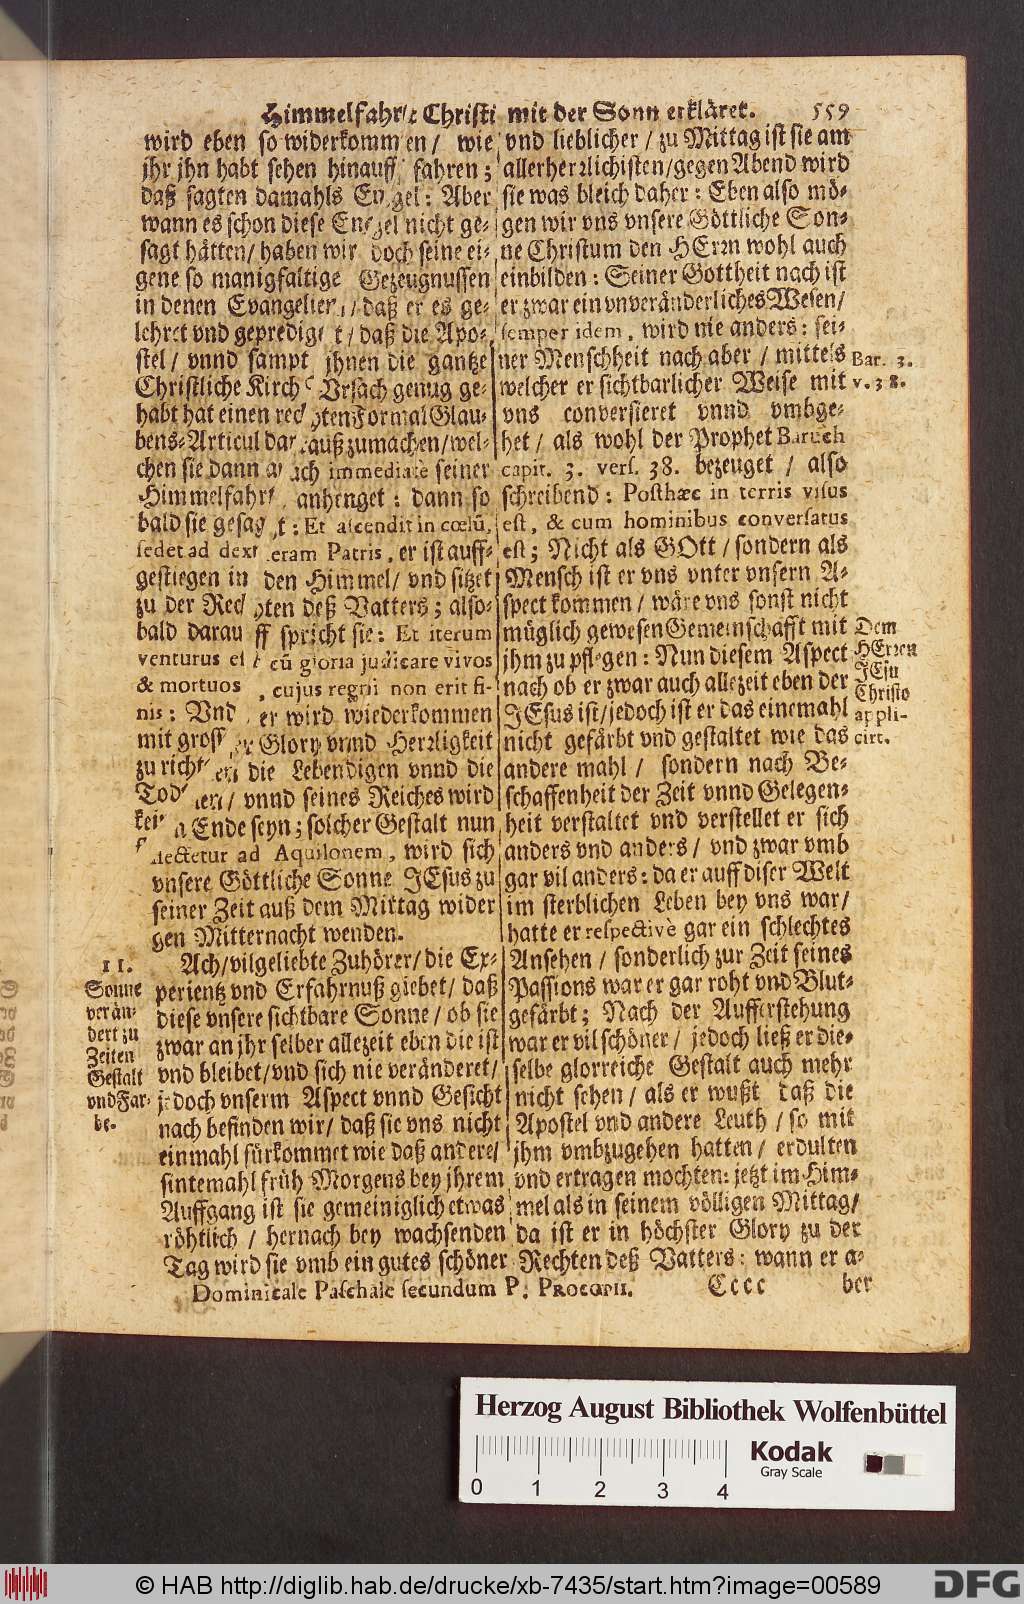 Himmelfahrt Christi mit der Sonn erkläret. 559
wird eben so widerkommen / wie
jhr jhn habt sehen hinauff fahren;
daß sagten damahls Engel: Aber
wann es schon diese Engel nicht ge-
sagt hätten / haben wir doch seine ei-
gene so manigfaltige Gezeugnussen
in denen Evangelien / daß er es ge-
lehret vnd geprediget / daß die Apo-
stel / vnnd sampt jhnen die gantze
Christliche Kirch Vrsach genug ge-
habt hat einen rechten Formal Glau-
bens-Articul darauß zumachen / wel-
chen sie dann auch immediatè seiner
Himmelfahrt anhenget: dann so
bald sie gesagt: Et ascendit in cœlũ,
sedet ad dexteram Patris, er ist auff-
gestiegen in den Himmel / vnd sitzet
zu der Rechten deß Vatters; also-
bald darauff spricht sie: Et iterum
venturus est cũ gloria judicare vivos
& mortuos, cujus regni non erit fi-
nis: Vnd er wird wiederkommen
mit grosser Glory vnnd Herrligkeit
zu richten die Lebendigen vnnd die
Todten / vnnd seines Reiches wird
kein Ende seyn; solcher Gestalt nun
flectetur ad Aquilonem, wird sich
vnsere Göttliche Sonne JEsus zu
seiner Zeit auß dem Mittag wider
gen Mitternacht wenden.
11.
Sonne
verän-
dert zu
Zeiten
Gestalt
vnd Far-
be.
Ach / vilgeliebte Zuhörer / die Ex-
perientz vnd Erfahrnuß giebet / daß
diese vnsere sichtbare Sonne / ob sie
zwar an jhr selber allezeit eben die ist
vnd bleibet / vnd sich nie veränderet /
jedoch vnserm Aspect vnnd Gesicht
nach befinden wir / daß sie vns nicht
einmahl fürkommet wie daß andere /
sintemahl früh Morgens bey jhrem
Auffgang ist sie gemeiniglich etwas
röhtlich / hernach bey wachsenden
Tag wird sie vmb ein gutes schöner
vnd lieblicher / zu Mittag ist sie am
allerherrlichisten / gegen Abend wird
sie was bleich daher: Eben also mö-
gen wir vns vnsere Göttliche Son-
ne Christum den HErrn wohl auch
einbilden: Seiner Gottheit nach ist
er zwar ein vnveränderliches Wesen /
semper idem, wird nie anders: sei-
ner Menschheit nach aber / mittels
welcher er sichtbarlicher Weise mit
vns conversieret vnnd vmbge-
het / als wohl der Prophet Baruch
capit. 3. vers. 38. bezeuget / also
schreibend: Posthæc in terris visus
est, & cum hominibus conversatus
est; Nicht als GOtt / sondern als
Mensch ist er vns vnter vnsern A-
spect kommen / wäre vns sonst nicht
müglich gewesen Gemeinschafft mit
jhm zu pflegen: Nun diesem Aspect
nach ob er zwar auch allezeit eben der
JEsus ist / jedoch ist er das einemahl
nicht gefärbt vnd gestaltet wie das
andere mahl / sondern nach Be-
schaffenheit der Zeit vnnd Gelegen-
heit verstaltet vnd verstellet er sich
anders vnd anders / vnd zwar vmb
gar vil anders: da er auff diser Welt
im sterblichen Leben bey vns war /
hatte er respectivè gar ein schlechtes
Ansehen / sonderlich zur Zeit seines
Passions war er gar roht vnd Blut-
gefärbt; Nach der Aufferstehung
war er vil schöner / jedoch ließ er die-
selbe glorreiche Gestalt auch mehr
nicht sehen / als er wußt daß die
Apostel vnd andere Leuth / so mit
jhm vmbzugehen hatten / erdulten
vnd ertragen mochten: jetzt im Him-
mel als in seinem völligen Mittag /
da ist er in höchster Glory zu der
Rechten deß Vatters: wann er a-
Bar. 3.
v. 38.
Dem
HErren
JEsu
Christo
appli-
cirt.
Dominicale Paschale secundum P. PROCOPII. Cccc ber
Herzog August Bibliothek Wolfenbüttel
Kodak
Gray Scale
0 1 2 3 4
© HAB http://diglib.hab.de/drucke/xb-7435/start.htm?image=00589
DFG